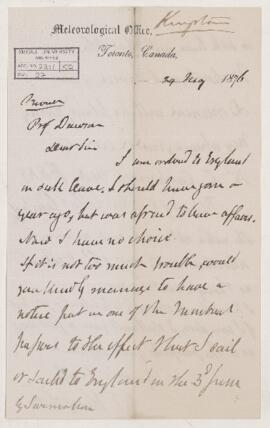 Kingston
Meteorological Office,
Toronto, Canada.
McGILL UNIVERSITY
ARCHIVES
ACC. NO. 2211 52
REF. 27
24 May 1876
Prof Dawson
Dear Sir
I am ordered to England
on sick leave, I should have gone a
year ago, but was afraid to leave affairs.
Now I have no choice.
If it is not too much trouble, would
you kindly manage to have a
notice put in one of the Montreal
papers to the effect that I sail
or sailed to England on the 3d June
by Sarmatian